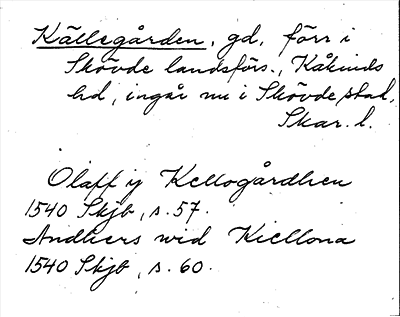 Källegården, gd, förr i
Skövde landsförs., Kåkinds
hd, ingår nu i Skövde stad,
Skar. l.
Olaff y Kellogårdhen
1540 Skjb, s. 57.
Andhers wid Kiellona
1540 Skjb, s. 60.